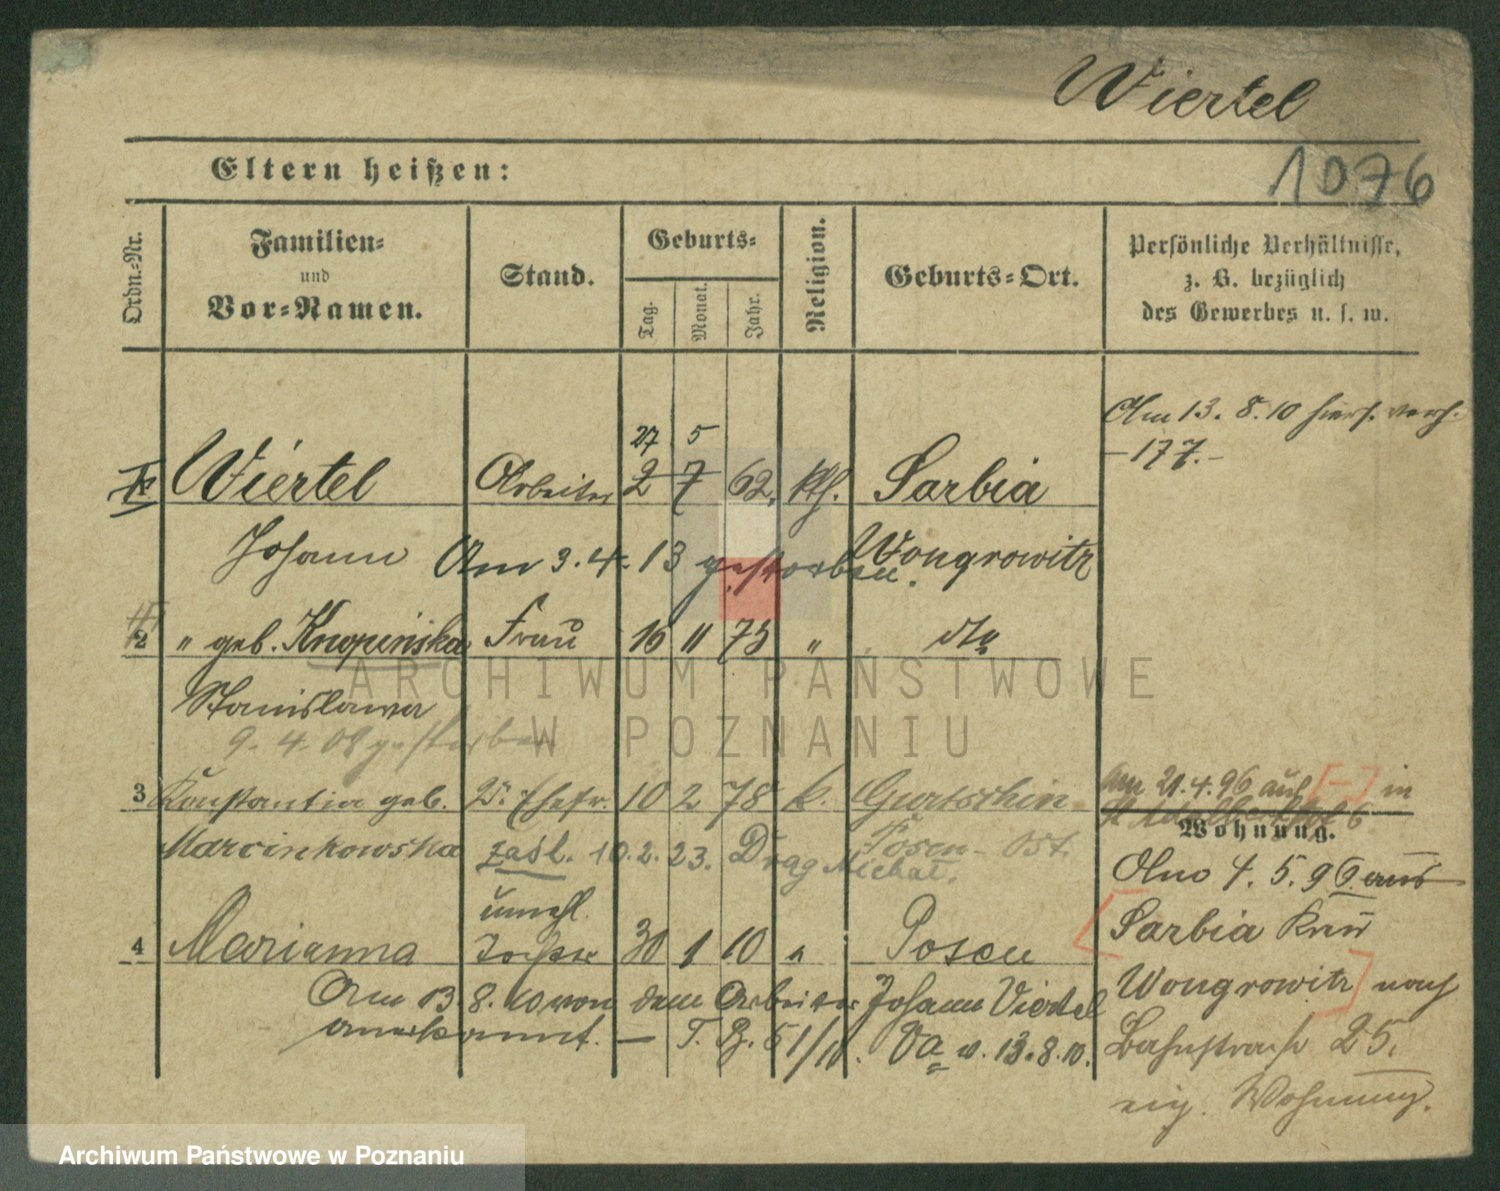 Viertel
1076
Eltern heißen:
Ordn.-Nr.
Familien-
und
Vor-Namen.
Stand.
Geburts-
Tag.
Monat.
Jahr.
Religion.
Geburts-Ort.
Persönliche Verhältnisse,
z. B. bezüglich
des Gewerbes u. s. w.
Am 13. 8. 10 hiers. verh.
- 177. -
27 5
Viertel Arbeiter 2 7 62. kth. Sarbia
Johann Am 3. 4. 13 gestorben. Wongrowitz
2 " geb. Knopinska Frau 16 11 75 " dto
Stanislawa
9. 4. 08 gestorben
3 Konstantia geb. Ehefr. 10 2 78 k. Gurtschin
am 21. 4. 96 auf [-] in
6
Marcinkowska zaśl. 10. 2. 23. Drag Michał. Posen - Ost
Wohnung.
Am 4. 5. 96. aus
Sarbia Kreis
Wongrowitz nach
Bahnstraße 25.
eig. Wohnung.
unehl.
4 Marianna Tochter 30 1 10 " Posen
Am 13. 8. 10 von dem Arbeiter Johann Viertel
anerkannt. - T. B. 51/10. Va v. 13. 8. 10.
ARCHIWUM PAŃSTWOWE
W POZNANIU
Archiwum Państwowe w Poznaniu